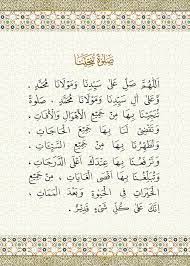 صَلَوةً تُنْجِينَا
اَللّٰهُمَّ صَلِّ عَلٰى سَيِّدِنَا وَمَوْلَانَا مُحَمَّدٍ .
وَعَلٰى اٰلِ سَيِّدِنَا وَمَوْلَانَا مُحَمَّدٍ . صَلٰوةً
تُنْجِينَا بِهَا مِنْ جَمِيعِ الْاَهْوَالِ وَالْاٰفَاتِ .
وَتَقْضِي لَنَا بِهَا مِنْ جَمِيعِ الْحَاجَاتِ .
وَتُطَهِّرُنَا بِهَا مِنْ جَمِيعِ السَّيِّئَاتِ .
وَتَرْفَعُنَا بِهَا عِنْدَكَ اَعْلَى الدَّرَجَاتِ .
وَتُبَلِّغُنَا بِهَا اَقْصَى الْغَايَاتِ . مِنْ جَمِيعِ
الْخَيْرَاتِ فِي الْحَيٰوةِ وَبَعْدَ الْمَمَاتِ .
اِنَّكَ عَلٰى كُلِّ شَيْءٍ قَدِيرٌ .